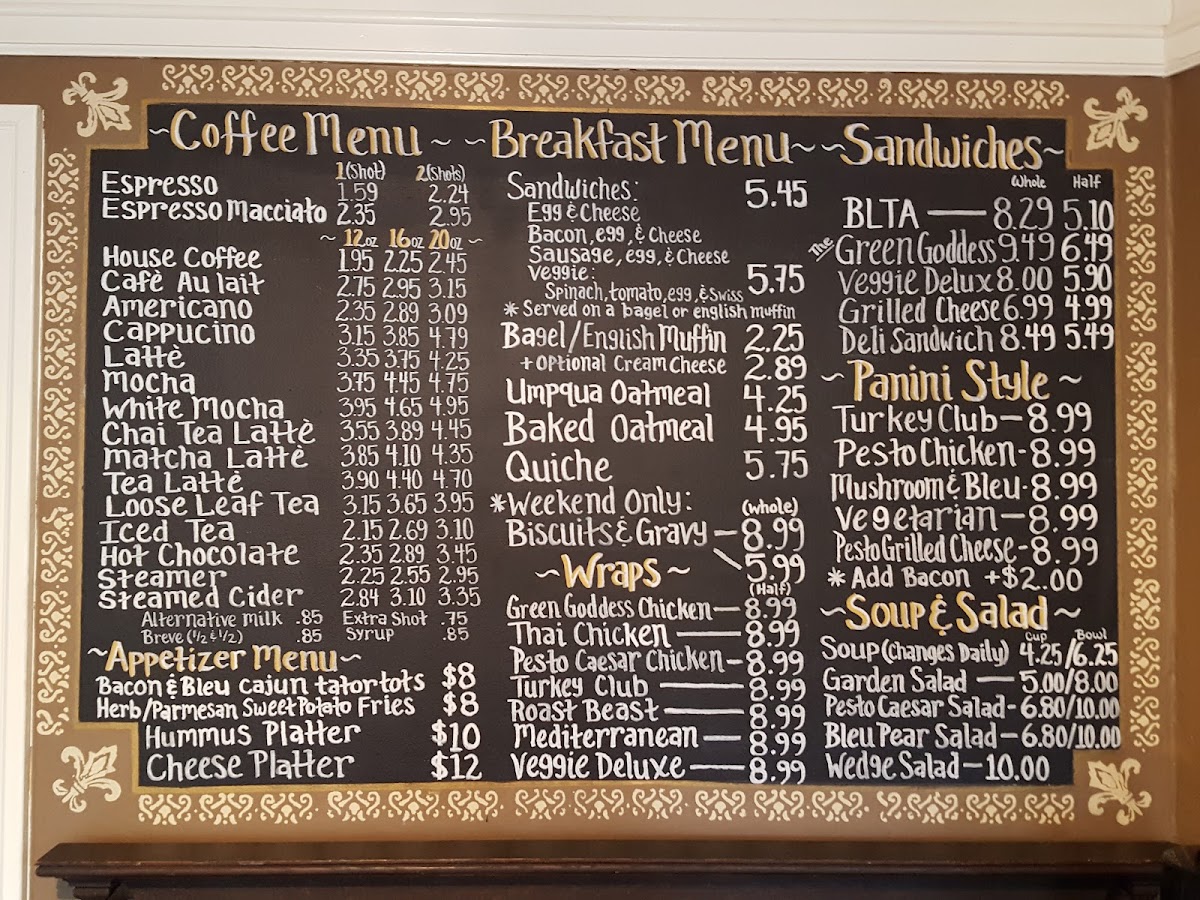 ~Coffee Menu~
1(Shot) 2(Shots)
Espresso 1.59 2.24
Espresso Macciato 2.35 2.95
~ 12oz 16oz 20oz ~
House Coffee 1.95 2.25 2.45
Cafè Au lait 2.75 2.95 3.15
Americano 2.35 2.89 3.09
Cappucino 3.15 3.85 4.79
Lattè 3.35 3.75 4.25
Mocha 3.75 4.45 4.75
White Mocha 3.95 4.65 4.95
Chai Tea Lattè 3.55 3.89 4.45
Matcha Lattè 3.85 4.10 4.35
Tea Lattè 3.90 4.40 4.70
Loose Leaf Tea 3.15 3.65 3.95
Iced Tea 2.15 2.69 3.10
Hot Chocolate 2.35 2.89 3.45
Steamer 2.25 2.55 2.95
Steamed Cider 2.84 3.10 3.35
Alternative Milk .85 Extra Shot .75
Breve (1/2 & 1/2) .85 Syrup .85
~Appetizer Menu~
Bacon & Bleu cajun tatortots $8
Herb/Parmesan Sweet Potato Fries $8
Hummus Platter $10
Cheese Platter $12
~Breakfast Menu~
Sandwiches: 5.45
Egg & Cheese
Bacon, egg, & Cheese
Sausage, egg, & Cheese
Veggie: 5.75
Spinach, tomato, egg, & Swiss
* Served on a bagel or english muffin
Bagel/English Muffin 2.25
+ Optional Cream Cheese 2.89
Umpqua Oatmeal 4.25
Baked Oatmeal 4.95
Quiche 5.75
*Weekend Only: (whole)
Biscuits & Gravy — 8.99
5.99
(Half)
~Wraps~
Green Goddess Chicken — 8.99
Thai Chicken — 8.99
Pesto Caesar Chicken - 8.99
Turkey Club — 8.99
Roast Beast — 8.99
Mediterranean — 8.99
Veggie Deluxe — 8.99
~Sandwiches~
Whole Half
BLTA — 8.29 5.10
The Green Goddess 9.49 6.49
Veggie Delux 8.00 5.90
Grilled Cheese 6.99 4.99
Deli Sandwich 8.49 5.49
~ Panini Style ~
Turkey Club — 8.99
Pesto Chicken - 8.99
Mushroom & Bleu - 8.99
Vegetarian — 8.99
Pesto Grilled Cheese - 8.99
* Add Bacon +$2.00
~Soup & Salad~
Cup Bowl
Soup (Changes Daily) 4.25/6.25
Garden Salad — 5.00/8.00
Pesto Caesar Salad - 6.80/10.00
Bleu Pear Salad — 6.80/10.00
Wedge Salad — 10.00